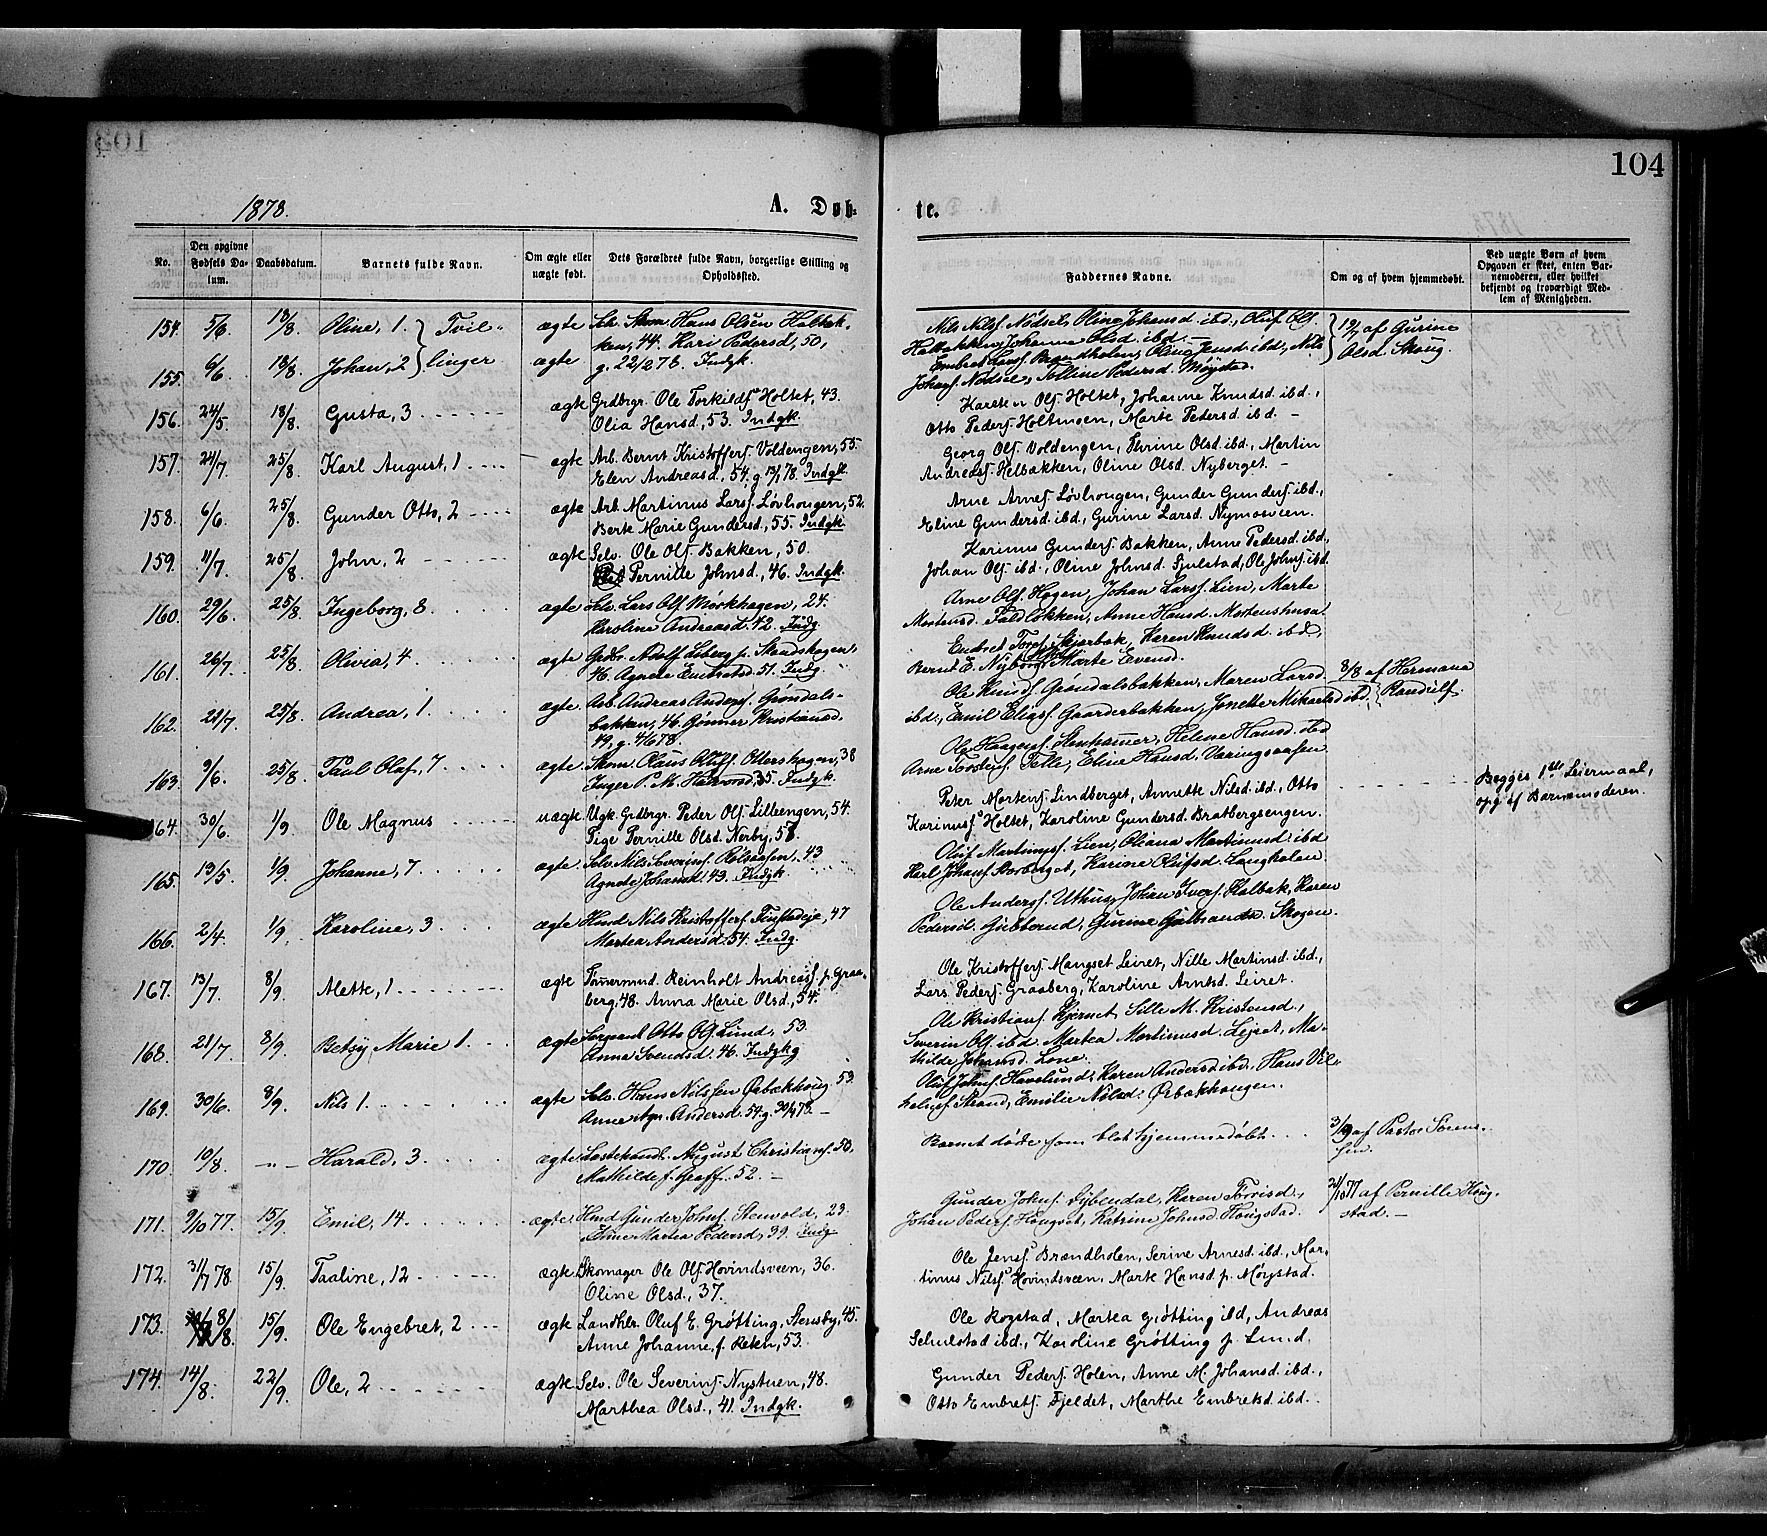 104
1878.
A. Døb-
te.
No.
Den opgivne Fødsels Datum.
Daabsdatum.
Barnets fulde Navn.
Om ægte eller uægte født.
Dets Forældres fulde Navn, borgerlige Stilling og Opholdssted.
Faddernes Navne.
Om og af hvem hjemmedøbt.
Ved uægte Børn af hvem Opgaven er skeet, enten Barnemoderen, eller hvilket bekjendt og troværdigt Medlem af Menigheden.
154. 5/6 18/8 Oline, 1. } Tvil-
ægte Selv. Hans Olsen Holbak-
ken, 44. Kari Pedersd, 50,
155. 6/6 18/8. Johan, 2 } linger
ægte g. 22/2 78. Indgk.
Nils Nilsf. Nødsel, Oline Johansd ibd., Oluf Ols.
Holbakken, Johanne Olsd. ibd. —
Johansf. Nødsel, Tolline Pedersd. Møystad.
19/7 af Gurine
Olsd. Skoug.
156. 24/5 18/8. Gusta, 3
ægte Grdbrgr. Ole Torkildsf. Holtet, 43.
Olia Hansd., 53. Indgk.
Karsten Olsf. Holtet, Johanne Knudsd. ibd.,
Otto Pedersf. Holtmoen, Marte Pedersd. ibd. —
157. 24/7 25/8. Karl August, 1
ægte Arb. Bernt Kristoffersf. Voldengen, 55.
Elen Andreasd., 54, g 13/1 78. Indgk.
Georg Olsf. Voldengen, Thrine Olsd. ibd., Martin
Andreasf. Helbakken, Oline Olsd. Nyberget. —
158. 6/6. 25/8. Gunder Otto, 2
ægte Arb. Martinus Larsf. Løvhougen, 52.
Berte Marie Gundersd., 55. Indgk.
Arne Arnesf. Løvhougen, Gunder Gundersf. ibd.,
Eline Gundersd. ibd., Gurine Larsd. Nymosveen.
159. 11/7. 25/8. John, 2
ægte Selv. Ole Olsf. Bakken, 50.
Pernille Johnsd., 46. Indgk.
Karinus Gundersf. Bakken, Anne Pedersd. ibd.,
Johan Olsf. ibd., Oline Johnsd. Fjulstad, Ole Johnsf. ibd.
160. 29/6. 25/8. Ingeborg, 8.
ægte Selv. Lars Olsf. Mørkhagen, 24.
Karoline Andreasd. 42. Indg.
Arne Olsf. Hagen, Johan Larsf. Lien, Marte
161. 26/7. 25/8. Olivia, 4
ægte Grdbr. Adolf
46. Agnete 51. Indg.
Bernt E. Nyborg, Marte Evensd.
162. 21/7. 25/8. Andrea, 1
ægte Arb. Andreas Andersf. Grøndals-
bakken, 46. Gunner Kristiansd.
49, g. 4/6 78.
Ole Knudsf. Grøndalsbakken, Maren Larsd.
ibd., Emil Eliasf. Gaarderbakken, Jonette Mikaelsd ibd.
8/8 af Hermana
163. 9/6. 25/8. Paul Olaf, 7
ægte Skom. Olaus Olufsf. Ottershagen, 38
Inger P. M. Halvorsd, 35. Indgk.
Arne Torstensf. Telle, Eline Hansd. Væringsaasen
164. 30/6. 1/9. Ole Magnus
uægte Ugk. Grdbrgr. Peder Olsf. Lilleengen, 54.
Pige Pernille Olsd. Nerby, 57.
Peter Martensf. Lindberget, Annette Nilsd. ibd., Otto
Karinusf. Holtet, Karoline Gundersd. Bratbergsengen.
Begges 1ste Leiermaal,
opg. af Barnemoderen.
165. 13/5. 1/9. Johanne, 7
ægte Selv. Nils Severinsf. Rølsaasen, 43
Agnete Johansd. 43. Indgk.
Oluf Martinusf. Lien, Oleana Martinusd. ibd
Karl Johansf. Rosberget, Karine Olufsd. Langholen.
166. 2/4. 1/9. Karoline, 3
ægte Husmd. Nils Kristoffersf. 47
Martea Andersd. 54. Indg.
Ole Andersf. Uthus, Johan Iversf. Kalbak, Karen
Pedersd. Gubberud, Gurine Gulbrandsd. Skogen.
167. 13/7. 8/9. Mette, 1
ægte Tømermnd. Reinholt Andreasf. p. Graa-
berg, 48. Anna Marie Olsd., 54.
Ole Kristoffersf. Mangset Leiret, Nille Martinsd. ibd.,
Lars Pedersf. Graaberg, Karoline Arntsd. Leiret.
168. 21/7. 8/9. Betsy Marie 1.
ægte Sergeant Otto Olsf. Lund, 53.
Anna Svendsd. 46. Indgkg
Ole Kristiansf. Kjernet, Sille M. Kristensd.,
Severin Olsf. ibd. Martea Martinusd. Lejret, Ma-
thilde Johansd. Lone.
169. 30/6. 8/9. Nils 1.
ægte Selv. Hans Nilssen Ørbækhoug 53.
Anne Agn. Andersd. 54.
Oluf Johnsf. Havslund, Karen Andersd ibd. Hans Vil-
helmsf. Strand, Emilie Nilsd. Ørbækhaugen.
170. 10/8. —„— Harald, 3
ægte August Christiansf. 50,
Mathilde f. Graff. 52. —
Barnet døde som blot hjemmedøbt.
af Pastor Søren-
sen.
171. 9/10 77. 15/9. Emil, 14.
ægte Husmd Gunder Johnsf. Stenvold, 23.
Martea Pedersd, 39. Indg
Gunder Johnsf. Dybendal, Karen Torrisd.,
Johan Pedersf. Hougset, Katrine Johnsd. Hougstad.
21/10 77 af Pernille Houg-
stad. —
172. 31/7 78. 15/9. Taaline, 12
ægte Skomager Ole Olsf. Hovindsveen, 36.
Oline Olsd., 37.
Ole Jensf. Brændholen, Serine Arnesd. ibd., Mar-
tinus Nilsf. Hovindsveen, Marte Hansd. p. Møystad.
173. 8/8. 15/9. Ole Engebret, 2
ægte Landhlr. Oluf E. Grøtting, Stensby, 45.
Anne Johanne, f. Reken, 53.
Ole Rogstad, Martea Grøtting ibd., Andreas
Schulstad ibd., Karoline Grøtting p. Lund.
174. 14/8. 22/9. Ole, 2
ægte Selv. Ole Severinsf. Nystuen, 48.
Marthea Olsd., 41. Indgk.
Gunder Pedersf. Holen, Anne M. Johansd. ibd.,
Otto Embretsf. Fjeldet, Marthe Embretsd. ibd.